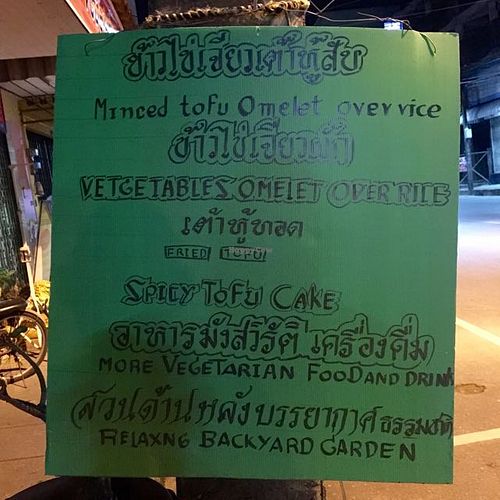 ข้าวไข่เจียวเต้าหู้สับ
Minced tofu Omelet over vice
ข้าวไข่เจียวผัก
VETGETABLES OMELET OVER RICE
เต้าหู้ทอด
FRIED TOFU
SPICY TOFU CAKE
อาหารมังสวิรัติ เครื่องดื่ม
MORE VEGETARIAN FOOD AND DRINK
สวนด้านหลังบรรยากาศธรรมชาติ
RELAXNG BACKYARD GARDEN